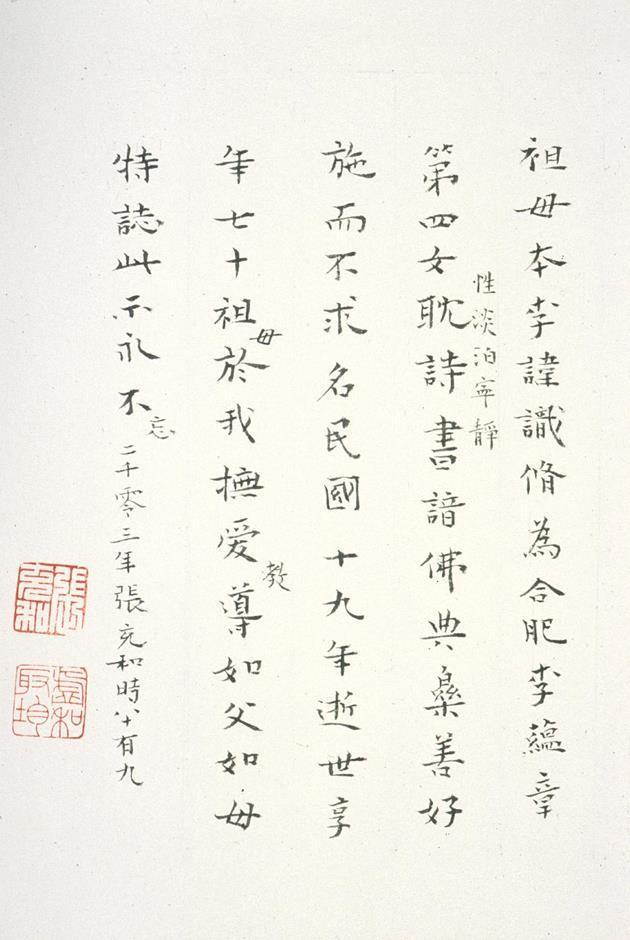 祖母本李諱識脩為合肥李蘊章
性淡泊寧靜
第四女耽詩書諳佛典樂善好
施而不求名民國十九年逝世享
年七十祖母於我撫愛教導如父如母
特誌此示永不忘 二千零三年張充和時八十有九
張印充和
虛和取均